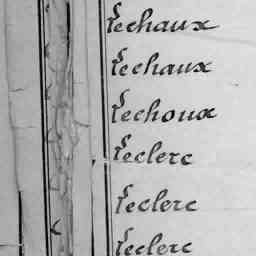 Lechaux
Lechaux
Lechoux
Leclerc
Leclerc
Leclerc